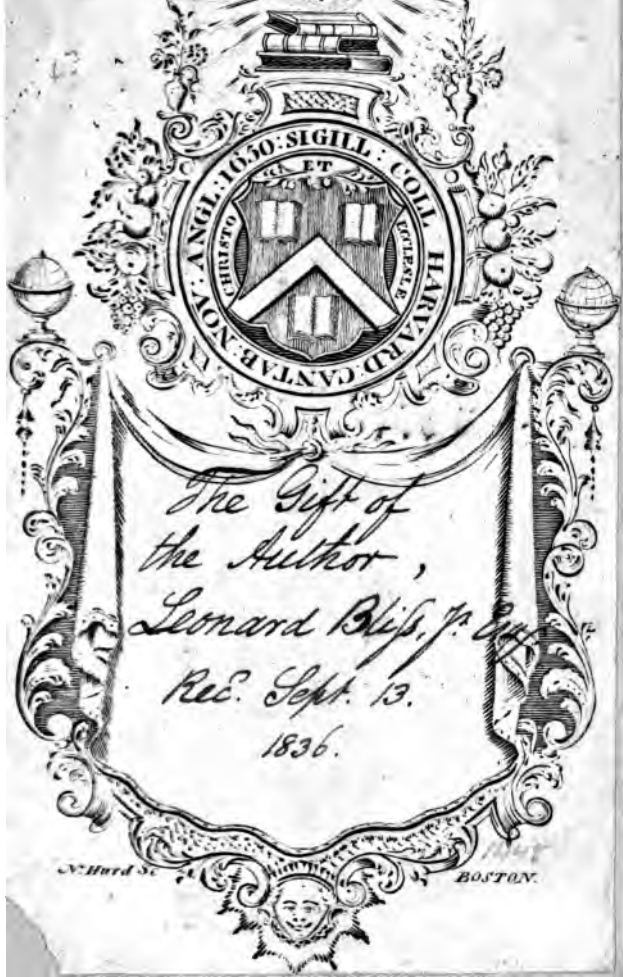 SIGILL: COLL HARVARD: CANTAB: NOV: ANGL: 1650:
CHRISTO ET ECCLESIÆ
The Gift of
the Author,
Leonard Bliſs, Jr. Esq.
Rec. Sept. 13.
1836.
N. Hurd Sc
BOSTON.